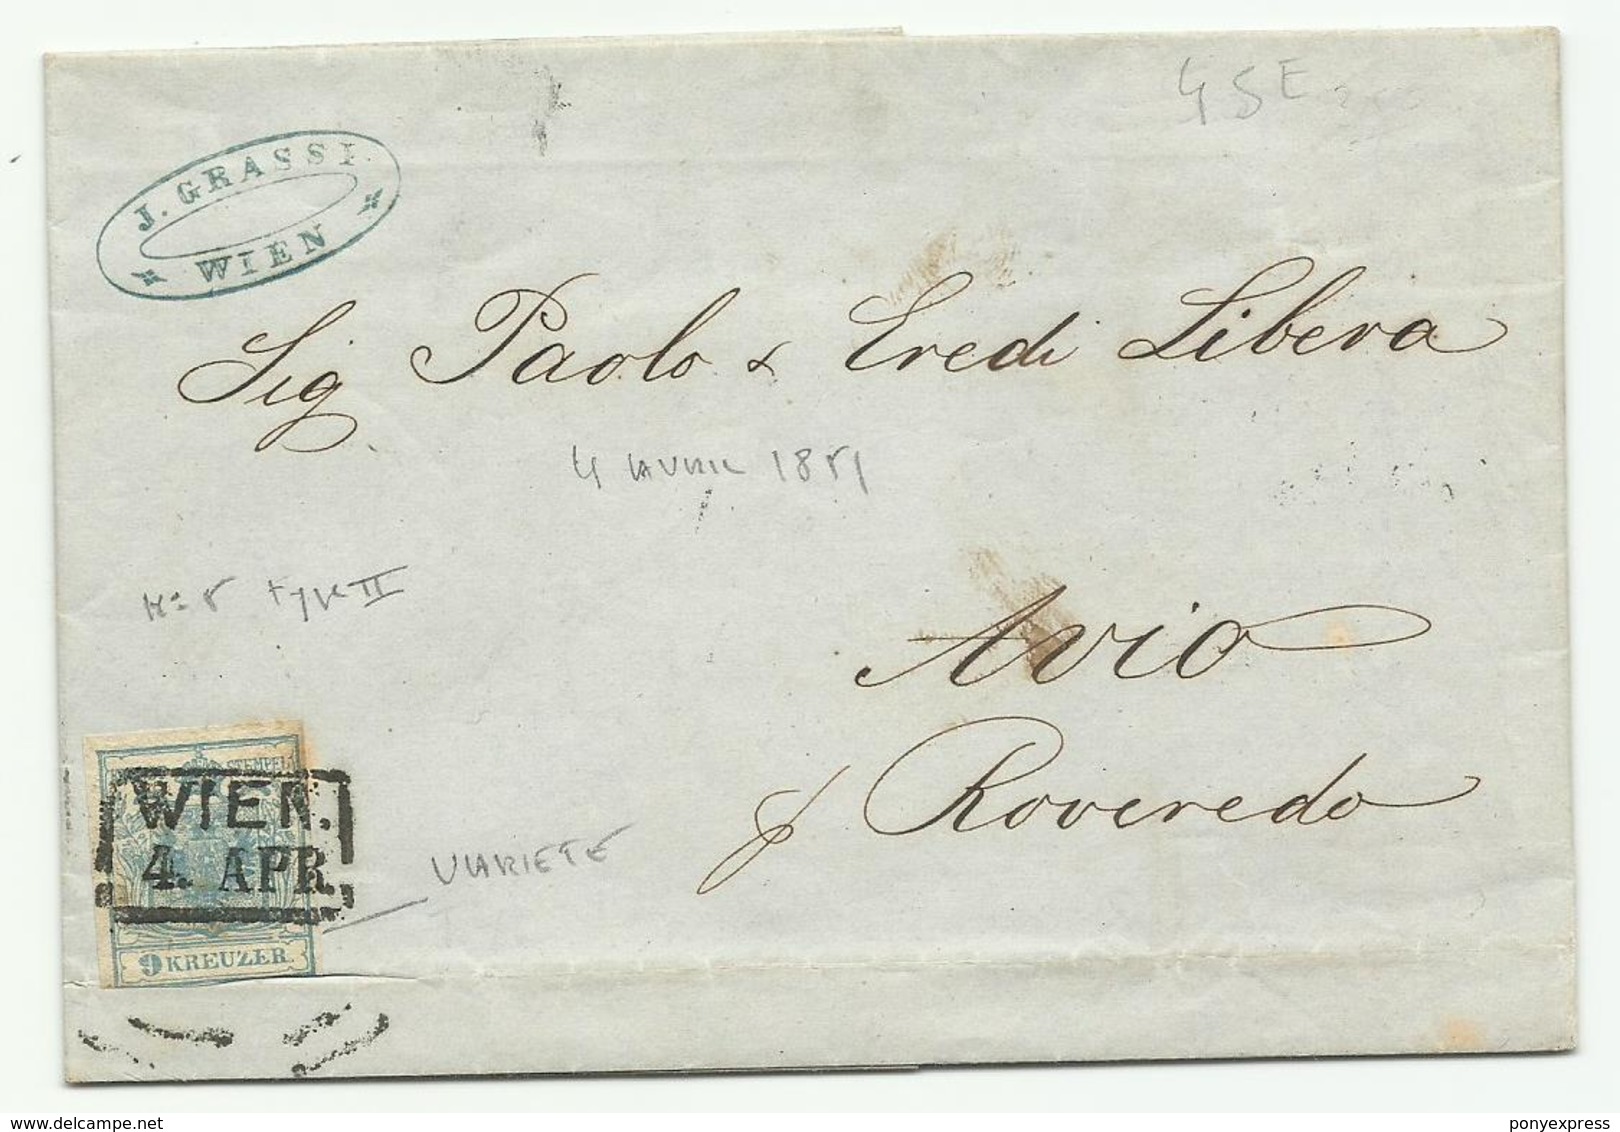 J. GRASSI
WIEN
45E
Sig Paolo & Eredi Libera
4 AVRIL 1851
N° 5 type II
Avio
p Roveredo
STEMPEL
WIEN.
4. APR.
VARIETE
9 KREUZER
delcampe.net
ponyexpress